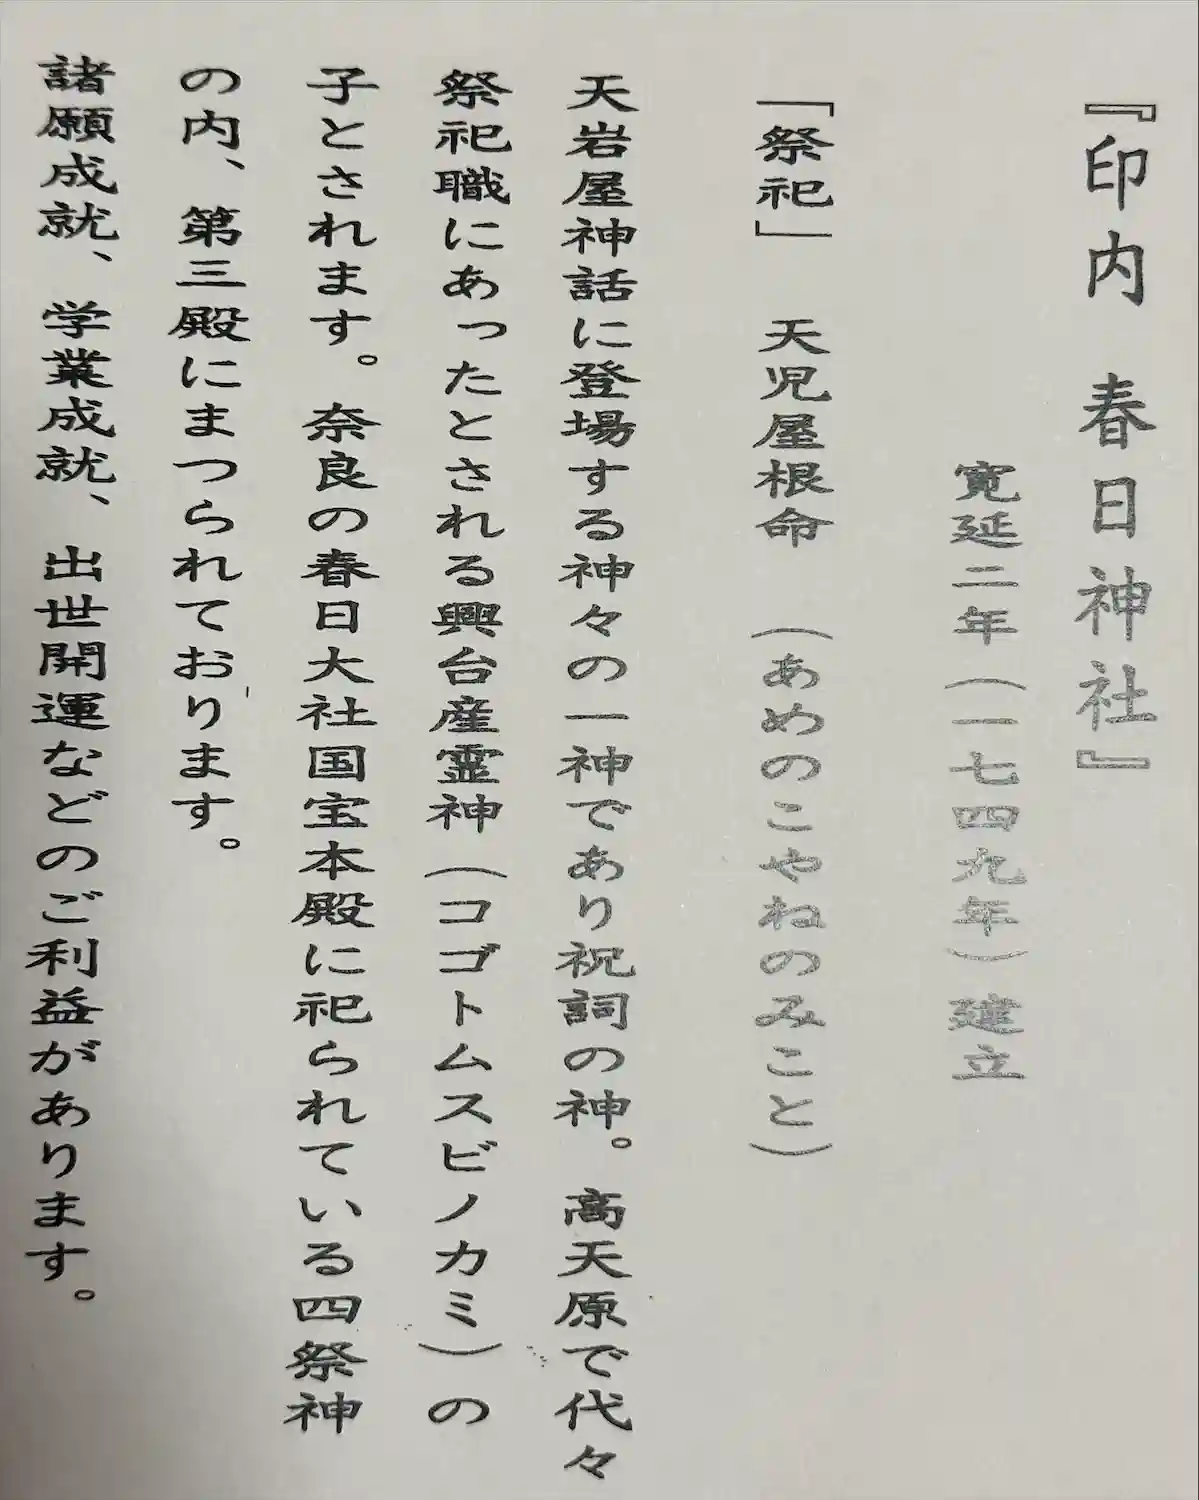 『印内 春日神社』
寛延二年（一七四九年）建立
「祭祀」 天児屋根命 （あめのこやねのみこと）
天岩屋神話に登場する神々の一神であり祝詞の神。高天原で代々
祭祀職にあったとされる興台産霊神（コゴトムスビノカミ）の
子とされます。奈良の春日大社国宝本殿に祀られている四祭神
の内、第三殿にまつられております。
諸願成就、学業成就、出世開運などのご利益があります。